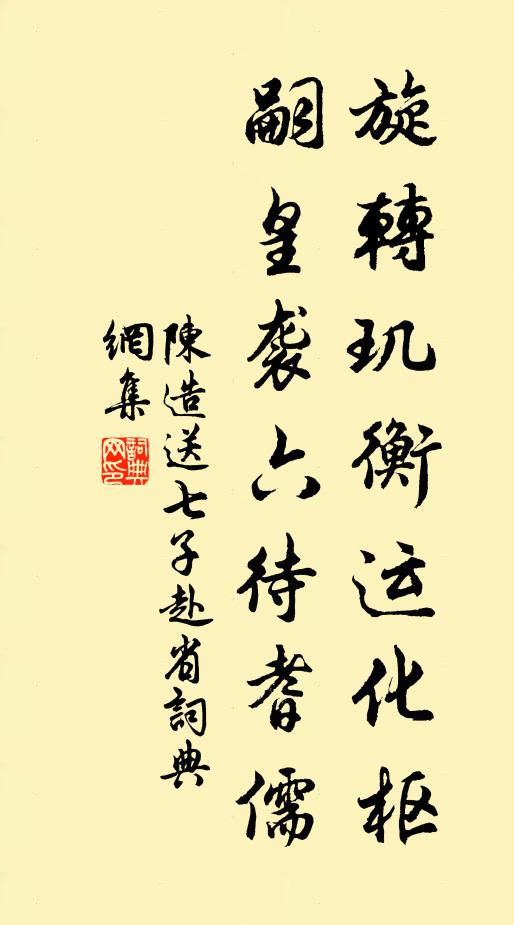 旋轉玑衡运化枢
嗣皇袭六待耆儒
陳造送七子赴省詞典
網集
詞典网印